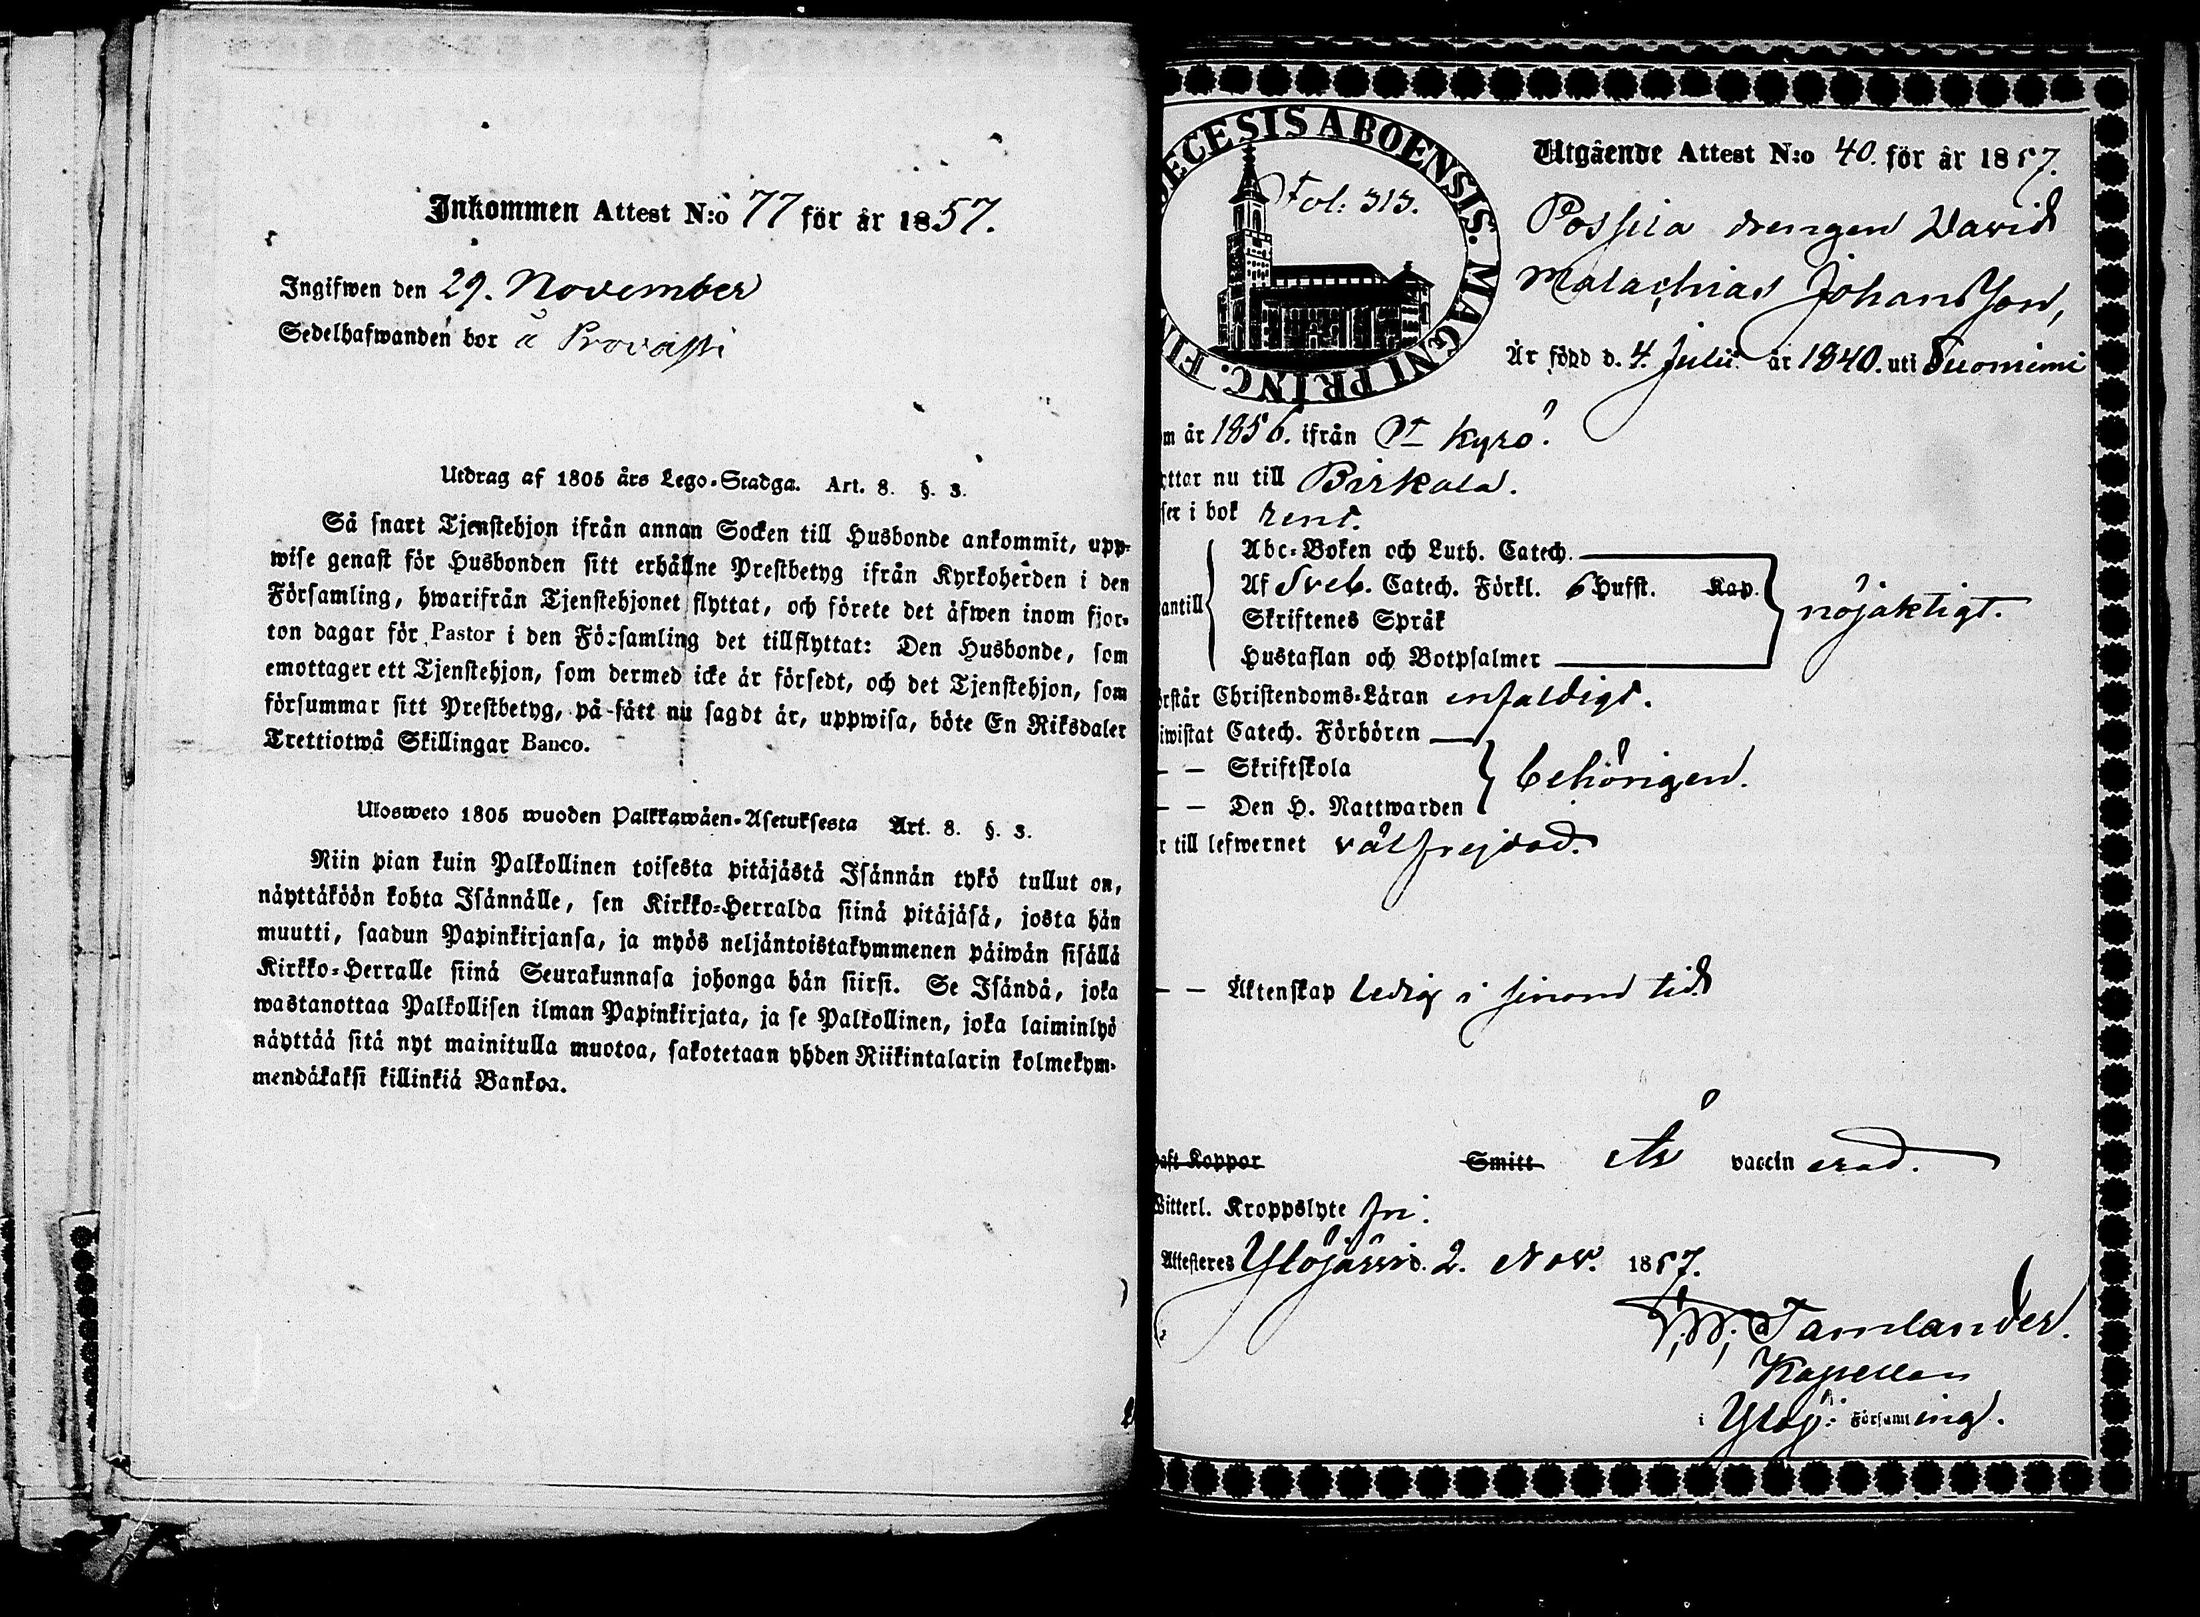 Inkommen Attest N:o 77 för år 1857.
Ingifwen den 29. November
Sedelhafwanden bor å Provasti
Utdrag af 1805 års Lego-Stadga. Art. 8. §. 3.
Så snart Tjenstehjon ifrån annan Socken till Husbonde ankommit, upp-
wise genast för Husbonden sitt erhållne Prestbetyg ifrån Kyrkoherden i den
Församling, hwarifrån Tjenstehjonet flyttat, och förete det äfwen inom fjor-
ton dagar för Pastor i den Församling det tillflyttat: Den Husbonde, som
emottager ett Tjenstehjon, som dermed icke är försedt, och det Tjenstehjon, som
försummar sitt Prestbetyg, på sätt nu sagdt är, uppwisa, böte En Riksdaler
Trettiotwå Skillingar Banco.
Ulosweto 1805 wuoden Palkkawäen-Asetuksesta Art. 8. §. 3.
Niin pian kuin Palkollinen toisesta pitäjästä Isännän tykö tullut on,
näyttäköön kohta Isännälle, sen Kirkko-Herralda siinä pitäjäsä, josta hän
muutti, saadun Papinkirjansa, ja myös neljäntoistakymmenen päiwän sisällä
Kirkko-Herralle siinä Seurakunnasa johonga hän siirsi. Se Isändä, joka
wastanottaa Palkollisen ilman Papinkirjata, ja se Palkollinen, joka laiminlyö
näyttää sitä nyt mainitulla muotoa, sakotetaan yhden Riikintalarin kolmekym-
mendäkaksi killinkiä Bankoa.
ECESIS ABOENSIS. MAGNI PRINC. FIN
Fol: 313.
Utgående Attest N:o 40. för år 1857.
drengen David
Malachias Johansson,
Är född d. 4. Julii år 1840. uti Tuomimi
m år 1856. ifrån Kyrö.
ttar nu till Birkala.
ser i bok rent.
antill
Abc-Boken och Luth. Catech.
Af Sveb. Catech. Förkl. 6 Hufst. Kap.
Skriftenes Språk
Hustaflan och Botpsalmer
nöjaktigt.
rstår Christendoms-Läran enfaldigt.
iwistat Catech. Förhören
— — Skriftskola
— — Den H. Nattwarden
behörigen.
r till lefwernet välfrejdad.
— — Äktenskap ledig i sinom tid
aft Koppor Smitt Är vaccin erad.
Witterl. Kroppslyte fri.
Attesteres Ylöjärvi d. 2. Nov. 1857.
Tamlander.
Kapellan
i Ylöj: Församl ing.